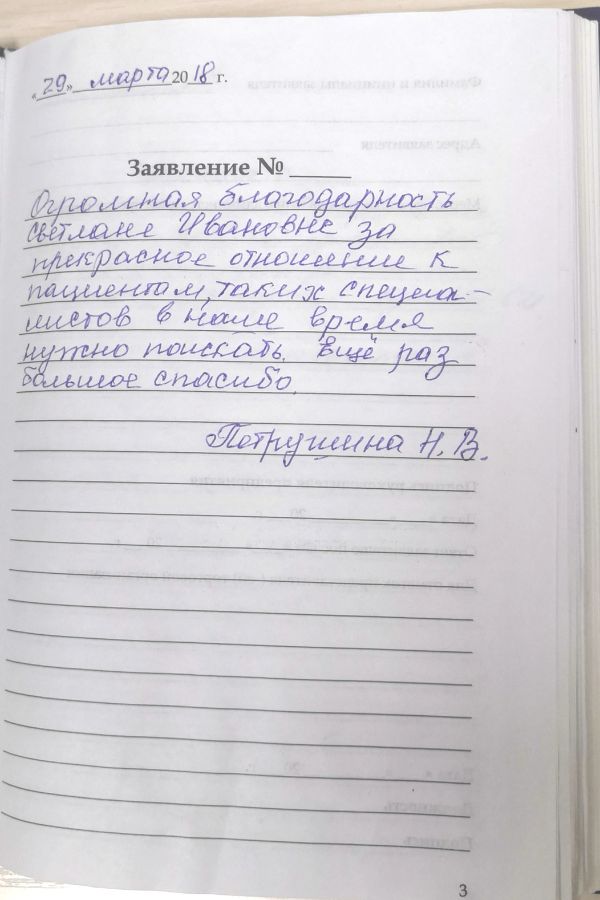 «29» марта 2018 г.
Заявление № ____
Огромная благодарность
светлане Ивановне за
прекрасное отношение к
пациентам, таких специа-
листов в наше время
нужно поискать. Ещё раз
большое спасибо.
Потрушина Н. В.
3